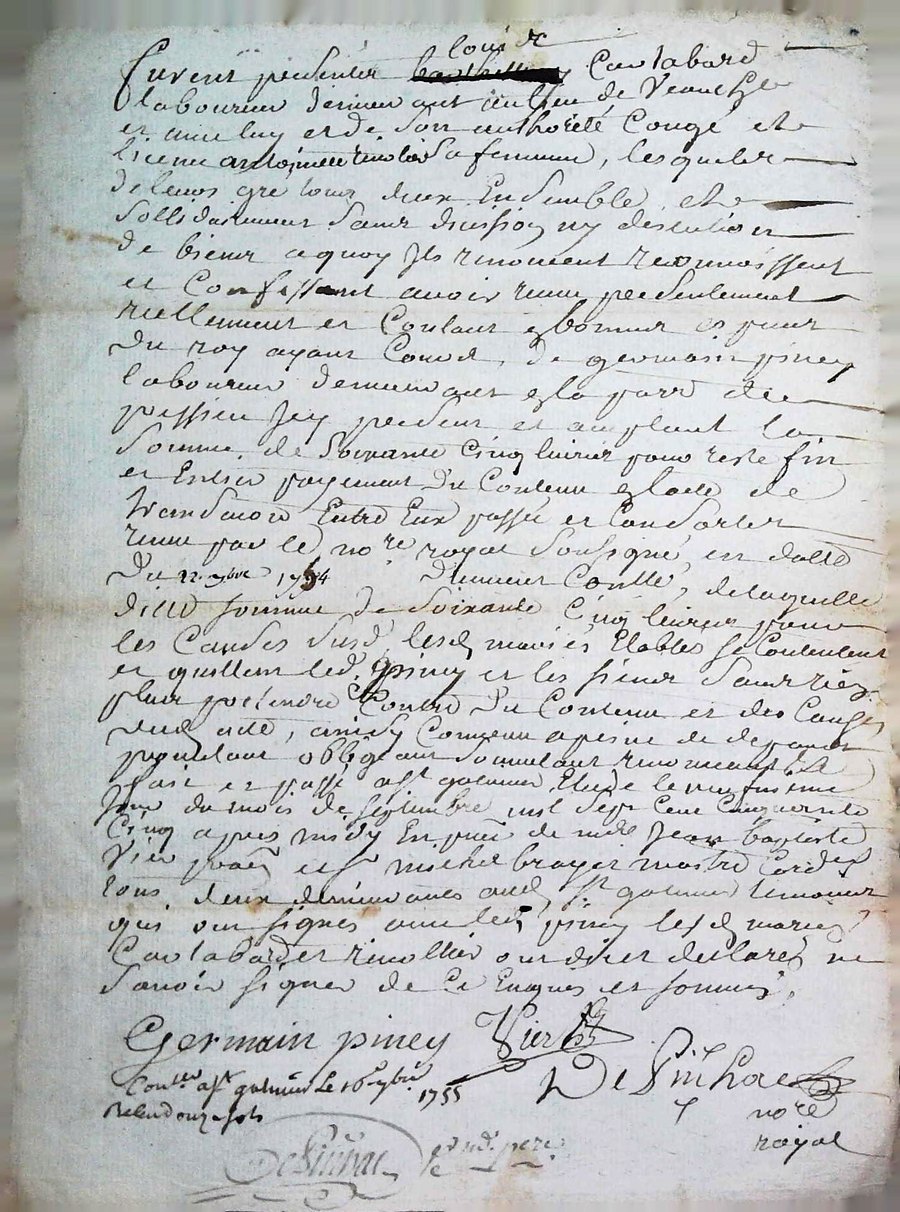 louis
furent presentes Coutabard
laboureur demeurant au lieu de Veauche
et avec luy et de son authorité Congé et
licence antoinette sa femme, lesquels
de leurs gre tous deux Ensemble et
sollidairement sans discussion ny
de biens a quoy Ils renoncent reconnoissent
et Confessent avoir recu presentement
reellement et Contant En bonnes Especes
du roy ayant Cours, de germain piney
laboureur demeurant la parr de
Icy present et acceptant la
Somme de Soixante Cinq livres pour reste fin
et Entier payement du Contenu En lacte de
transaction Entre Eux passé et
recue par le nore royal Soussigné, en datte
du 22 9bre 1754 dument Contlle, de laquelle
ditte somme de Soixante Cinq livres pour
les Causes Susd lesd mariés Etables se Contentent
et quittent led. piney et les siens Sans rien
plus pretendre Contre du Contenu et des Causes
dud acte, ainsy Convenu a peine de depans
obligeant Soumetant renonceant
fait et passé a st galmier Etude le neufvieme
jour du mois de septembre mil Sept Cent Cinquante
Cinq apres midy En pnce de me Jean baptiste
Vier et sr michel brayer maitre
tous deux demeurants aud st galmier temoins
qui ont signés avec led piney lesd mariés
Coutabard et rivollier ont dit et declarés ne
Savoir signer de Ce Enquis et sommés.
Germain piney Vier
DeSinhac
Contlle a st galmier Le 16 7bre 1755
Recu douze sols
nore
royal
DeSinhac